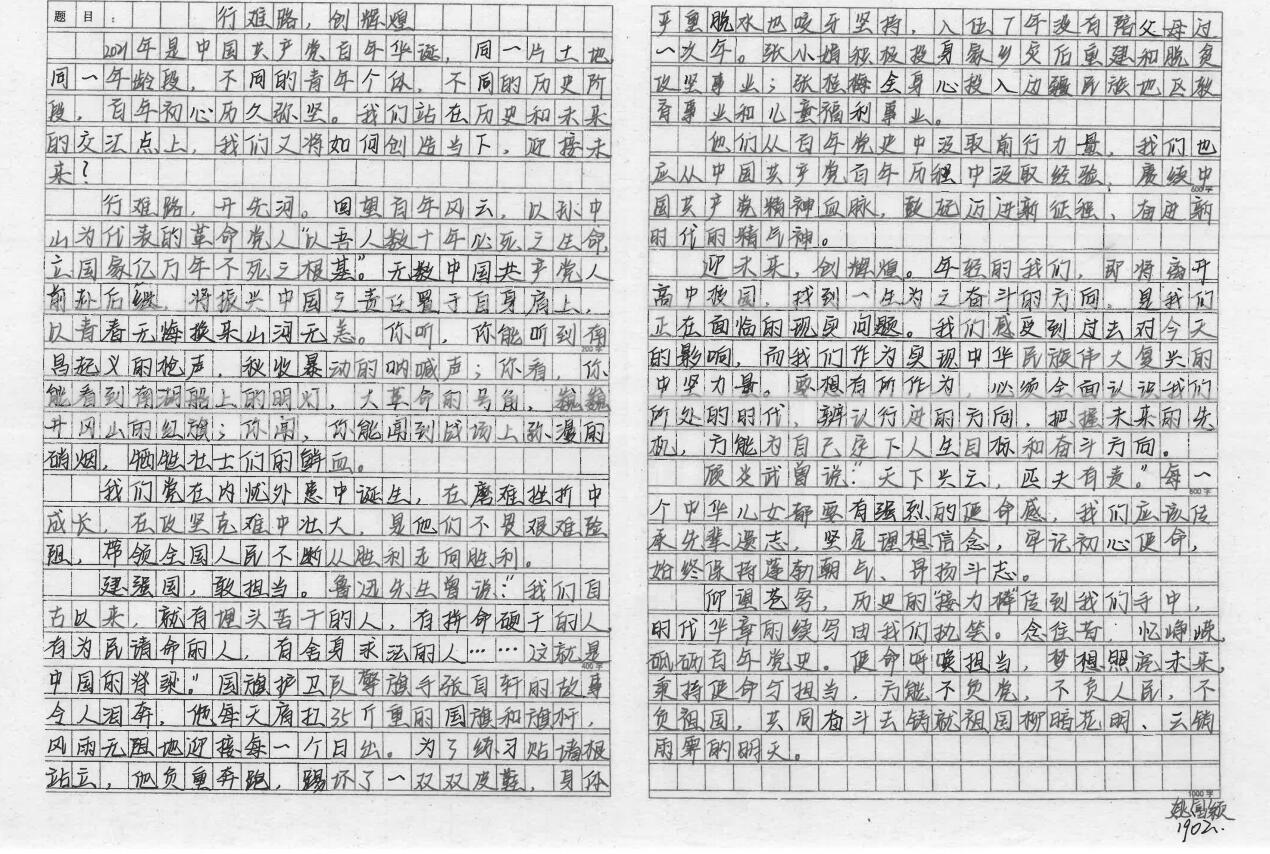 题目： 行难路，创辉煌
2021年是中国共产党百年华诞，同一片土地
同一年龄段，不同的青年个体，不同的历史阶
段，百年初心历久弥坚。我们站在历史和未来
的交汇点上，我们又将如何创造当下，迎接未
来？
行难路，开先河。回望百年风云，以孙中
山为代表的革命党人“以吾人数十年必死之生命
立国家亿万年不死之根基”。无数中国共产党人
前赴后继，将振兴中国之责任置于自身肩上，
以青春无悔换来山河无恙。你听，你能听到南
200字
昌起义的枪声，秋收暴动的呐喊声；你看，你
能看到南湖船上的明灯，大革命的号角，巍巍
井冈山的红旗；你闻，你能闻到战场上弥漫的
硝烟，牺牲壮士们的鲜血。
我们党在内忧外患中诞生，在磨难挫折中
成长，在攻坚克难中壮大，是他们不畏艰难险
阻，带领全国人民不断从胜利走向胜利。
建强国，敢担当。鲁迅先生曾说：“我们自
古以来，就有埋头苦干的人，有拼命硬干的人
有为民请命的人，有舍身求法的人……这就是
400字
中国的脊梁。”国旗护卫队擎旗手张自轩的故事
令人泪奔，他每天肩扛35斤重的国旗和旗杆，
风雨无阻地迎接每一个日出。为了练习贴墙根
站立，他负重奔跑，踢坏了一双双皮鞋，身体
严重脱水也咬牙坚持，入伍7年没有陪父母过
一次年。张小娟积极投身家乡灾后重建和脱贫
攻坚事业；张桂梅全身心投入边疆民族地区教
育事业和儿童福利事业。
他们从百年党史中汲取前行力量，我们也
应从中国共产党百年历程中汲取经验，赓续中
600字
国共产党精神血脉，鼓起迈进新征程、奋进新
时代的精气神。
迎未来，创辉煌。年轻的我们，即将离开
高中校园，找到一生为之奋斗的方向，是我们
正在面临的现实问题。我们感受到过去对今天
的影响，而我们作为实现中华民族伟大复兴的
中坚力量。要想有所作为，必须全面认识我们
所处的时代，辨认行进的方向，把握未来的先
机，方能为自己定下人生目标和奋斗方向。
顾炎武曾说：“天下兴亡，匹夫有责”每一
800字
个中华儿女都要有强烈的使命感，我们应该传
承先辈遗志，坚定理想信念，牢记初心使命，
始终保持蓬勃朝气、昂扬斗志。
仰望苍穹，历史的“接力棒”传到我们手中，
时代华章的续写由我们执笔。念往昔，忆峥嵘，
砥砺百年党史。使命呼唤担当，梦想照亮未来，
秉持使命与担当，方能不负党，不负人民，不
负祖国，共同奋斗去铸就祖国柳暗花明、云销
雨霁的明天。
1000字
1902.